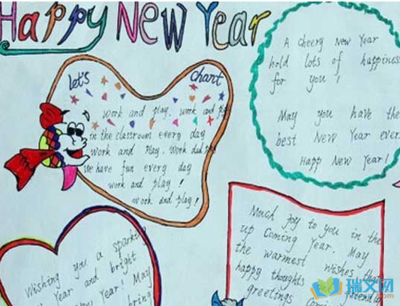 Happy New Year
let's chart
work and play, work and play
in the classroom every day
work and play. Work and play
We have fun every day
work and play!
work and play!
A Cheery New Year
hold lots of happiness
for you!
May you have the
best New Year ever.
Happy New Year!
Much joy to you in the
up coming Year. May
the warmest wishes,
happy thoughts
greetings
Wishing you a spark
Year and bright
Year. May
bring
瑞文网